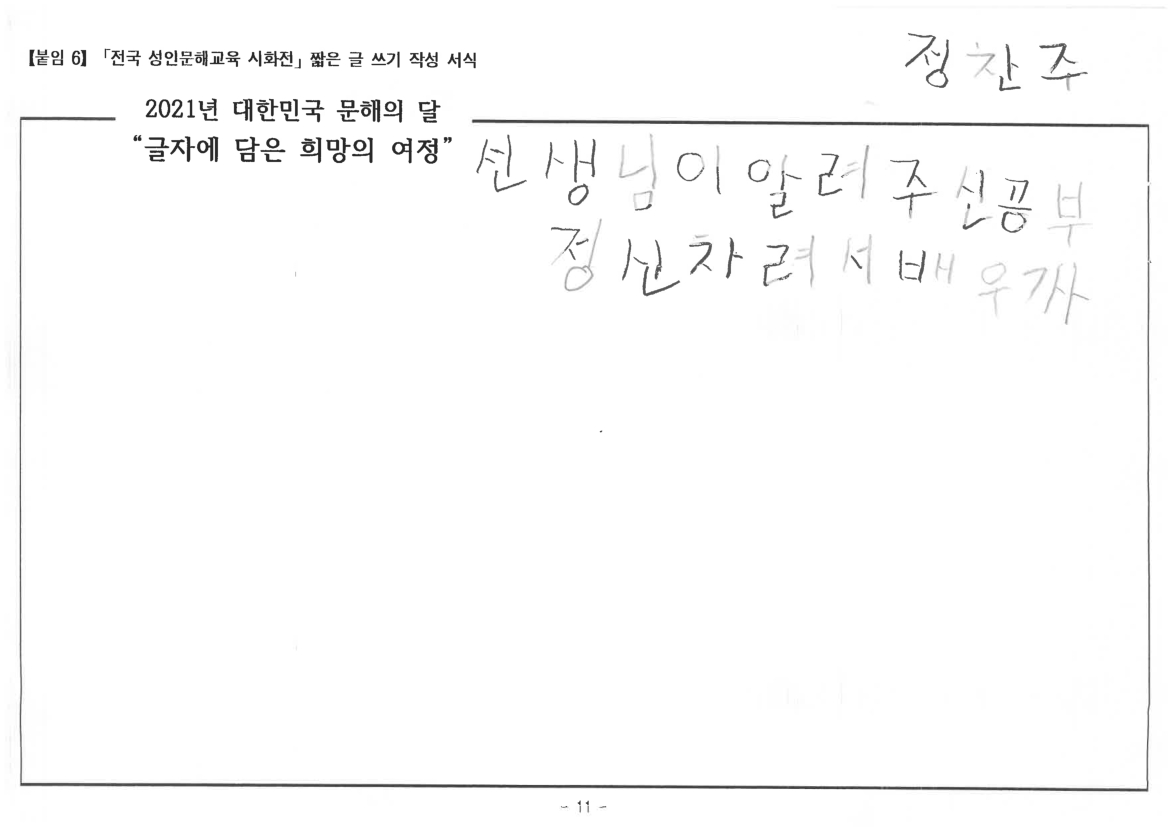 【붙임 6】 「전국 성인문해교육 시화전」 짧은 글 쓰기 작성 서식
정찬주
2021년 대한민국 문해의 달
“글자에 담은 희망의 여정”
선생님이알려주신공부
정신차려서배우자
- 11 -